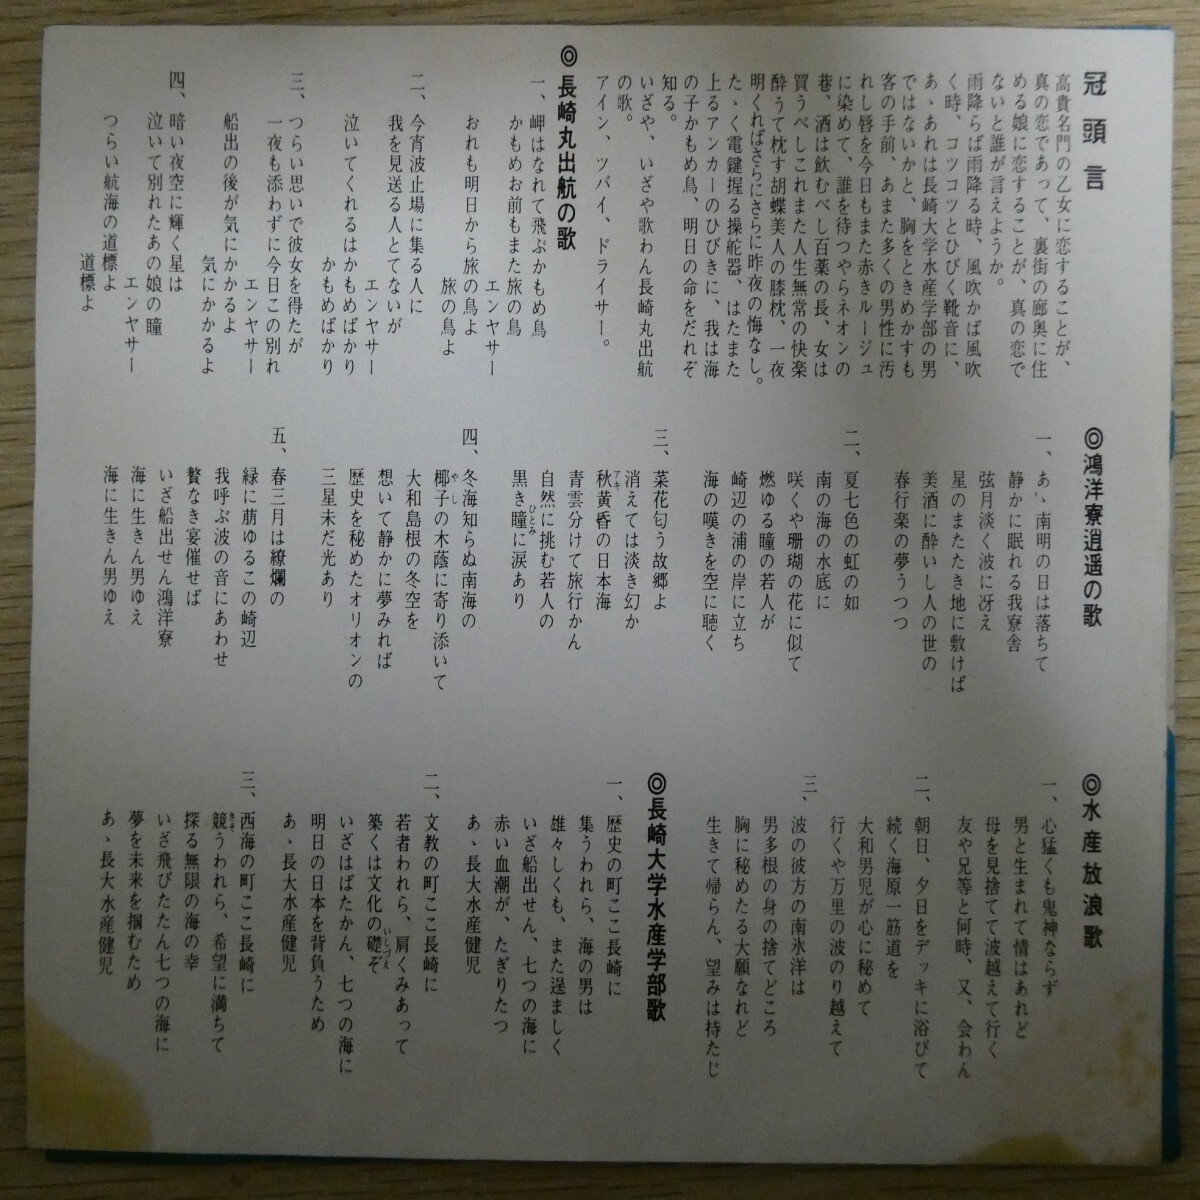 冠頭言
高貴名門の乙女に恋することが、
真の恋であって、裏街の廊奥に住
める娘に恋することが、真の恋で
ないと誰が言えようか。
雨降らば雨降る時、風吹かば風吹
く時、コツコツとひびく靴音に、
あゝあれは長崎大学水産学部の男
ではないかと、胸をときめかすも
客の手前、あまた多くの男性に汚
れし唇を今日もまた赤きルージュ
に染めて、誰を待つやらネオンの
巷、酒は飲むべし百薬の長、女は
買うべしこれまた人生無常の快楽
酔うて枕す胡蝶美人の膝枕、一夜
明くればさらにさらに昨夜の悔なし。
たゝく電鍵握る操舵器、はたまた
上るアンカーのひびきに、我は海
の子かもめ鳥、明日の命をだれぞ
知る。
いざや、いざや歌わん長崎丸出航
の歌。
アイン、ツバイ、ドライサー。
◎長崎丸出航の歌
一、岬はなれて飛ぶかもめ鳥
かもめお前もまた旅の鳥
エンヤサー
おれも明日から旅の鳥よ
旅の鳥よ
二、今宵波止場に集る人に
我を見送る人とてないが
エンヤサー
泣いてくれるはかもめばかり
かもめばかり
三、つらい思いで彼女を得たが
一夜も添わずに今日この別れ
エンヤサー
船出の後が気にかかるよ
気にかかるよ
四、暗い夜空に輝く星は
泣いて別れたあの娘の瞳
エンヤサー
つらい航海の道標よ
道標よ
◎鴻洋寮逍遥の歌
一、あゝ南明の日は落ちて
静かに眠れる我寮舎
弦月淡く波に冴え
星のまたたき地に敷けば
美酒に酔いし人の世の
春行楽の夢うつつ
二、夏七色の虹の如
南の海の水底に
咲くや珊瑚の花に似て
燃ゆる瞳の若人が
崎辺の浦の岸に立ち
海の嘆きを空に聴く
三、菜花匂う故郷よ
消えては淡き幻か
秋黄昏の日本海
青雲分けて旅行かん
自然に挑む若人の
黒き瞳に涙あり
四、冬海知らぬ南海の
椰子の木蔭に寄り添いて
大和島根の冬空を
想いて静かに夢みれば
歴史を秘めたオリオンの
三星未だ光あり
五、春三月は繚爛の
緑に萠ゆるこの崎辺
我呼ぶ波の音にあわせ
贅なき宴催せば
いざ船出せん鴻洋寮
海に生きん男ゆえ
海に生きん男ゆえ
◎水産放浪歌
一、心猛くも鬼神ならず
男と生まれて情はあれど
母を見捨てて波越えて行く
友や兄等と何時、又、会わん
二、朝日、夕日をデッキに浴びて
続く海原一筋道を
大和男児が心に秘めて
行くや万里の波のり越えて
三、波の彼方の南氷洋は
男多根の身の捨てどころ
胸に秘めたる大願なれど
生きて帰らん、望みは持たじ
◎長崎大学水産学部歌
一、歴史の町ここ長崎に
集うわれら、海の男は
雄々しくも、また逞ましく
いざ船出せん、七つの海に
赤い血潮が、たぎりたつ
あゝ長大水産健児
二、文教の町ここ長崎に
若者われら、肩くみあって
築くは文化の礎ぞ
いざはばたかん、七つの海に
明日の日本を背負うため
あゝ長大水産健児
三、西海の町ここ長崎に
競うわれら、希望に満ちて
探る無限の海の幸
いざ飛びたたん七つの海に
夢を未来を掴むため
あゝ長大水産健児